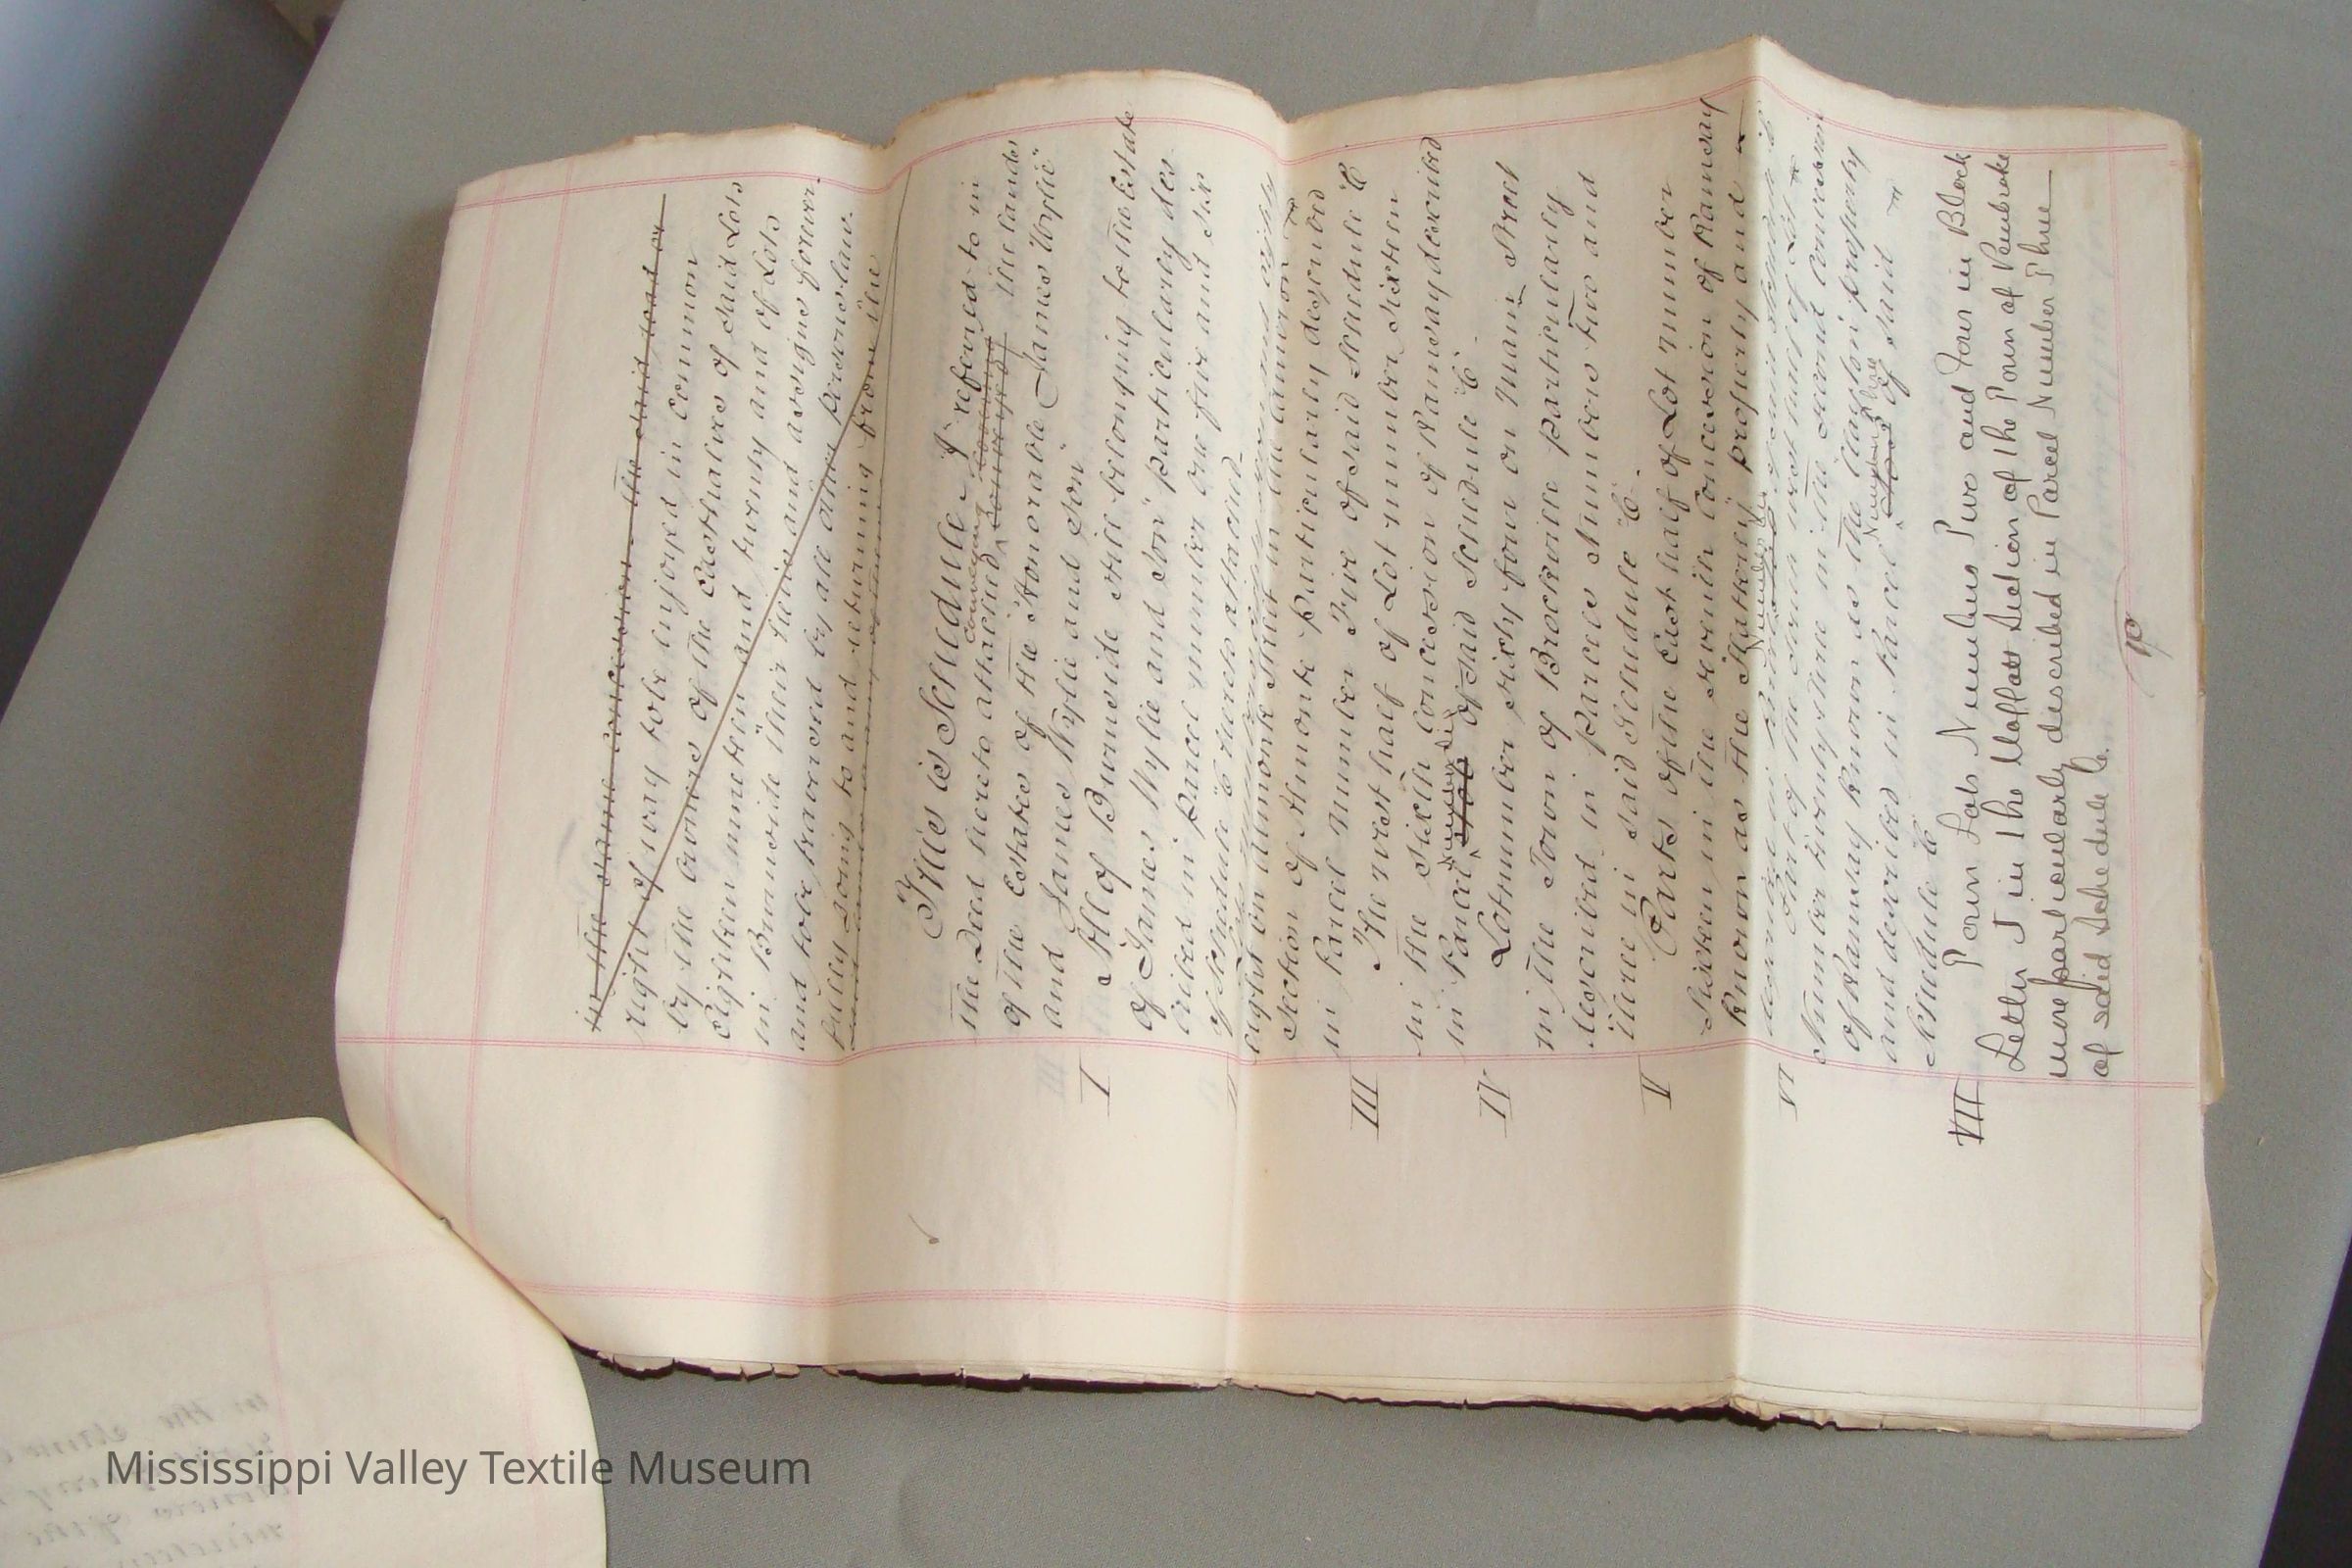 in the same concession the said road or
right of way to be enjoyed in common
by the owners of the East halves of said Lots
Eighteen nineteen and twenty and of Lots
in Burnside their heirs and assigns forever
and to be traversed by all other persons law-
fully going to and returning from the
This is Schedule "J" referred to in
the Deed hereto attached conveying the lands
of the Estates of the "Honorable James Wylie"
and "James Wylie and Son"
I All of Burnside still belonging to the Estate
of "James Wylie and Son" particularly des-
cribed in Parcel number one five and six
of Schedule "C" hereto attached.
eight on Almonte Street in the Cameron
Section of Almonte particularly described
in Parcel Number Five of said Schedule "C"
III The west half of Lot number Sixteen
in the Sixth Concession of Ramsay described
in Parcel number six of said Schedule "C".
IV Lot number Sixty four on Main Street
in the Town of Brockville particularly
described in Parcels Numbers Two and
Three in said Schedule "C".
V Parts of the East half of Lot number
Sixteen in the Seventh Concession of Ramsay
known as the Slattery property and
described in Parcel number
VI Part of the South west half of Lot
Number twenty three in the second Concession
of Ramsay known as the Clayton property
and described in Parcel Number Nine of said
Schedule "C"
VII Town Lots Numbers Two and Four in Block
Letter J in the Moffatt Section of the Town of Pembroke
more particularly described in Parcel Number Three
of said Schedule C.
Mississippi Valley Textile Museum